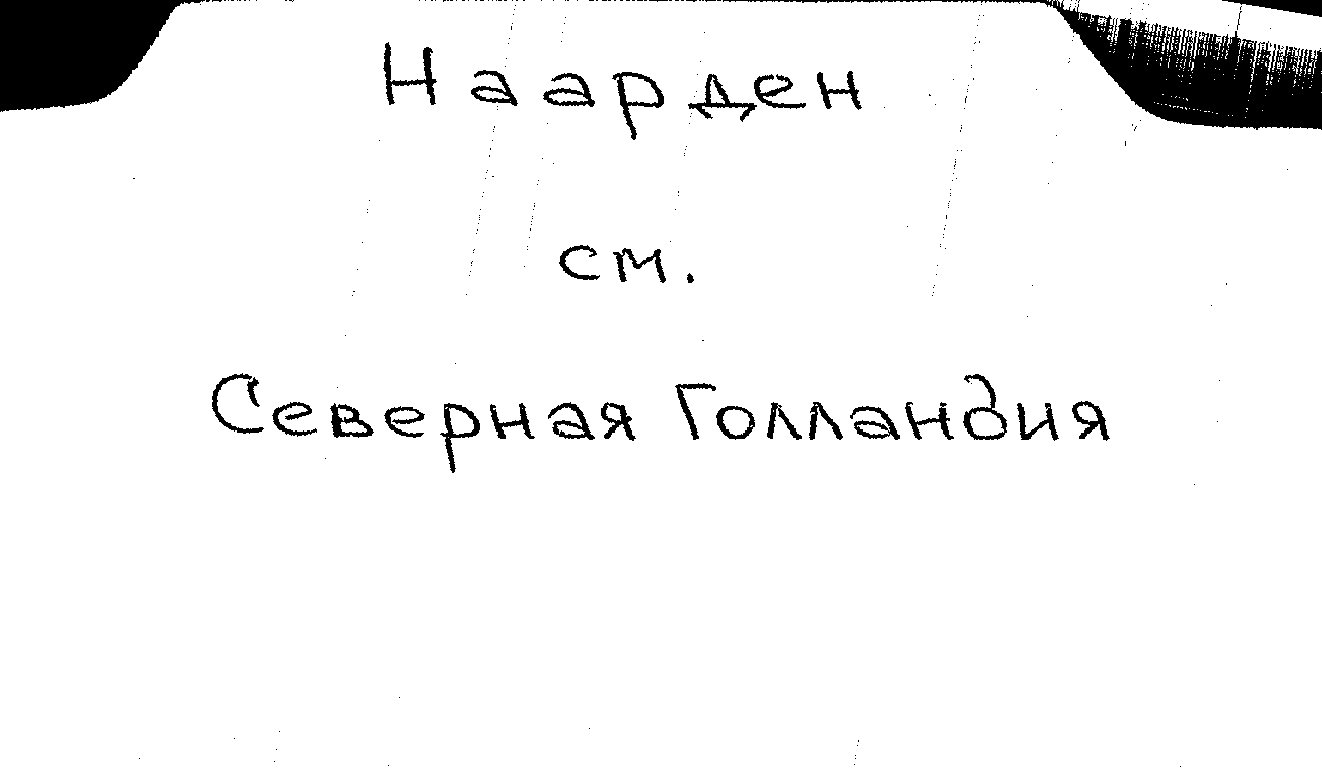 Наарден
см.
Северная Голландия